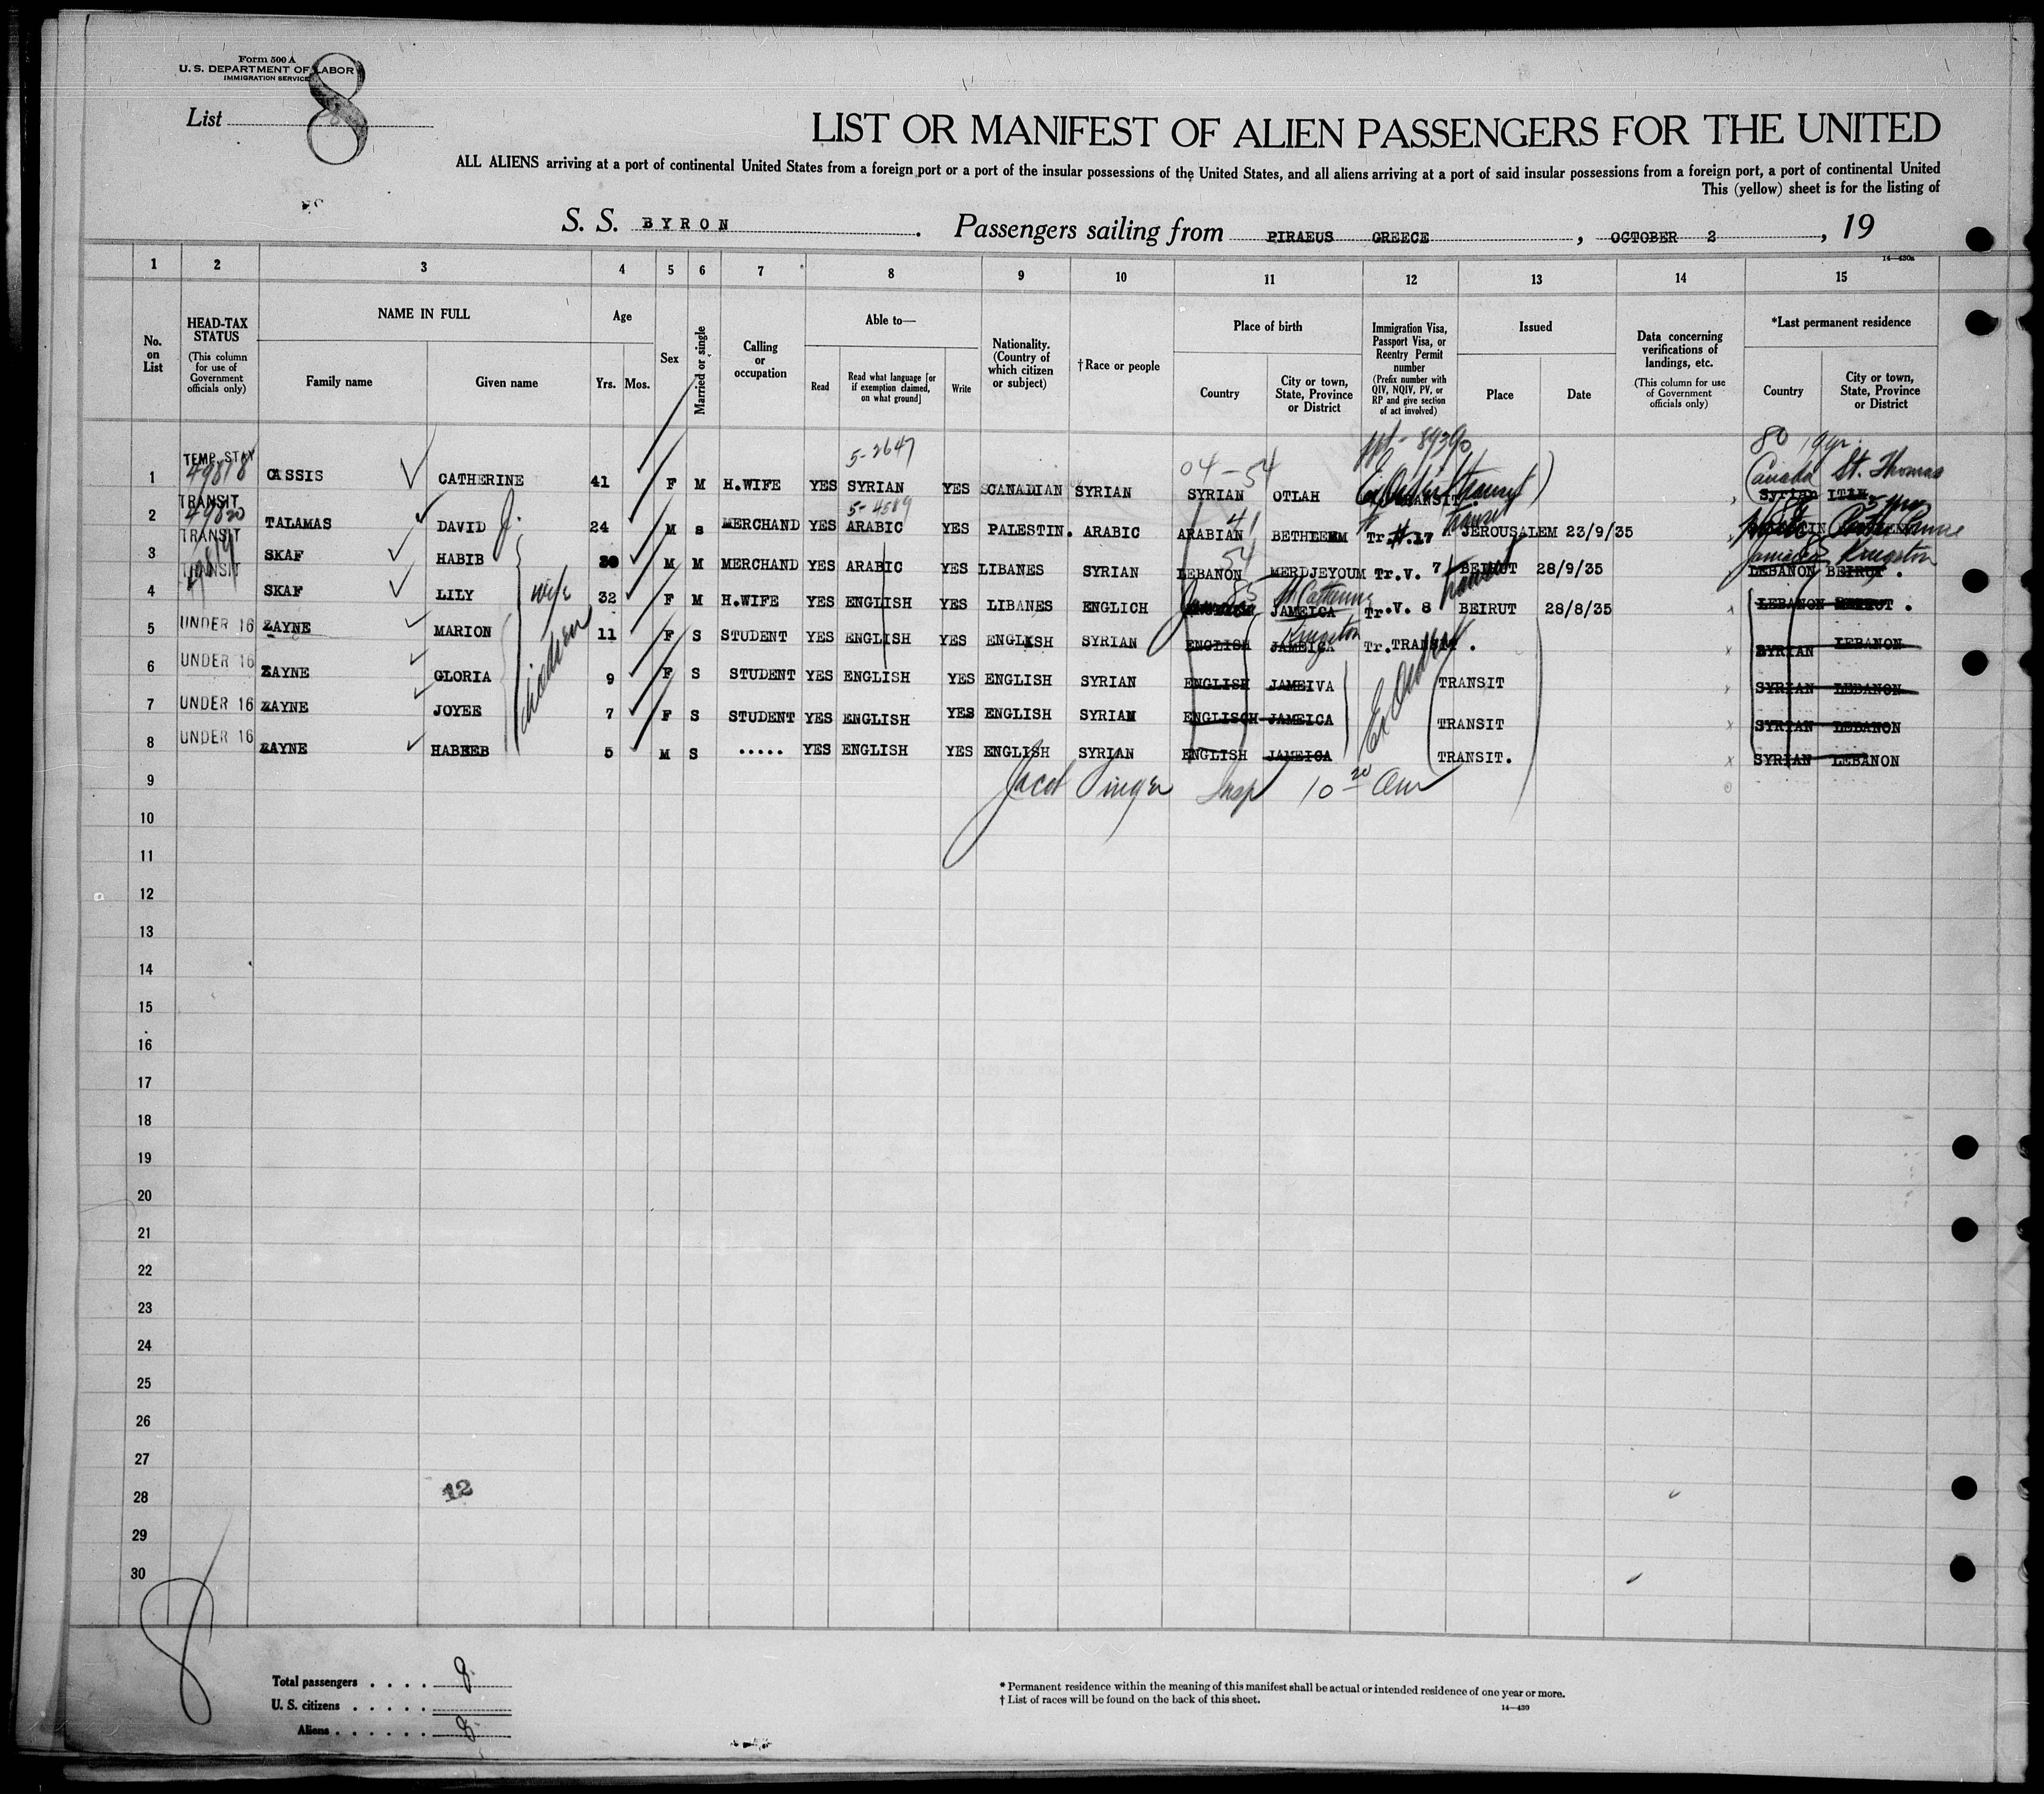 Form 500 A
U. S. DEPARTMENT OF LABOR
IMMIGRATION SERVICE
List 8
LIST OR MANIFEST OF ALIEN PASSENGERS FOR THE UNITED
ALL ALIENS arriving at a port of continental United States from a foreign port or a port of the insular possessions of the United States, and all aliens arriving at a port of said insular possessions from a foreign port, a port of continental United
This (yellow) sheet is for the listing of
S. S. BYRON. Passengers sailing from PIRAEUS GREECE, OCTOBER 2, 19
14—430a
1 2 3 4 5 6 7 8 9 10 11 12 13 14 15
No. on List
HEAD-TAX STATUS
(This column for use of Government officials only)
NAME IN FULL
Family name
Given name
Age
Yrs. Mos.
Sex
Married or single
Calling or occupation
Able to—
Read
Read what language [or if exemption claimed, on what ground]
Write
Nationality. (Country of which citizen or subject)
†Race or people
Place of birth
Country
City or town, State, Province or District
Immigration Visa, Passport Visa, or Reentry Permit number
(Prefix number with QIV, NQIV, PV, or RP and give section of act involved)
Issued
Place
Date
Data concerning verifications of landings, etc.
(This column for use of Government officials only)
*Last permanent residence
Country
City or town, State, Province or District
5-2647 04-54 80
TEMP. STAY 49818 Canada St. Thomas
1 CASSIS CATHERINE 41 F M H.WIFE YES SYRIAN YES CANADIAN SYRIAN SYRIAN OTLAH TRANSIT Syrian
TRANSIT 49820 5-4589 41
2 TALAMAS DAVID J. 24 M s MERCHAND YES ARABIC YES PALESTIN. ARABIC ARABIAN Tr. 17 JEROUSALEM 23/9/35
TRANSIT 49819 54 Jamaica Kingston
3 SKAF HABIB 30 M M MERCHAND YES ARABIC YES LIBANES SYRIAN LEBANON MERDJEYOUM Tr.V. 7 BEIRUT 28/9/35 LEBANON BEIRUT.
TRANSIT wife 85 St Catherine
4 SKAF LILY 32 F M H.WIFE YES ENGLISH YES LIBANES ENGLICH JAMEICA Tr.V. 8 BEIRUT 28/8/35 LEBANON BEIRUT.
children Kingston
5 UNDER 16 ZAYNE MARION 11 F S STUDENT YES ENGLISH YES ENGLISH SYRIAN ENGLISH JAMEICA Tr.TRANSIT. SYRIAN LEBANON
6 UNDER 16 ZAYNE GLORIA 9 F S STUDENT YES ENGLISH YES ENGLISH SYRIAN ENGLISH JAMEIVA TRANSIT SYRIAN LEBANON
7 UNDER 16 ZAYNE JOYEE 7 F S STUDENT YES ENGLISH YES ENGLISH SYRIAN ENGLISCH JAMEICA TRANSIT SYRIAN LEBANON
8 UNDER 16 ZAYNE HABEEB 5 M S ..... YES ENGLISH YES ENGLISH SYRIAN ENGLISH JAMEICA TRANSIT. SYRIAN LEBANON
9 Jacob Insp 10
10
11
12
13
14
15
16
17
18
19
20
21
22
23
24
25
26
27
28 12
29
30
8
Total passengers . . . . 8
U. S. citizens . . . . .
Aliens . . . . . . 8
* Permanent residence within the meaning of this manifest shall be actual or intended residence of one year or more.
† List of races will be found on the back of this sheet.
14—430